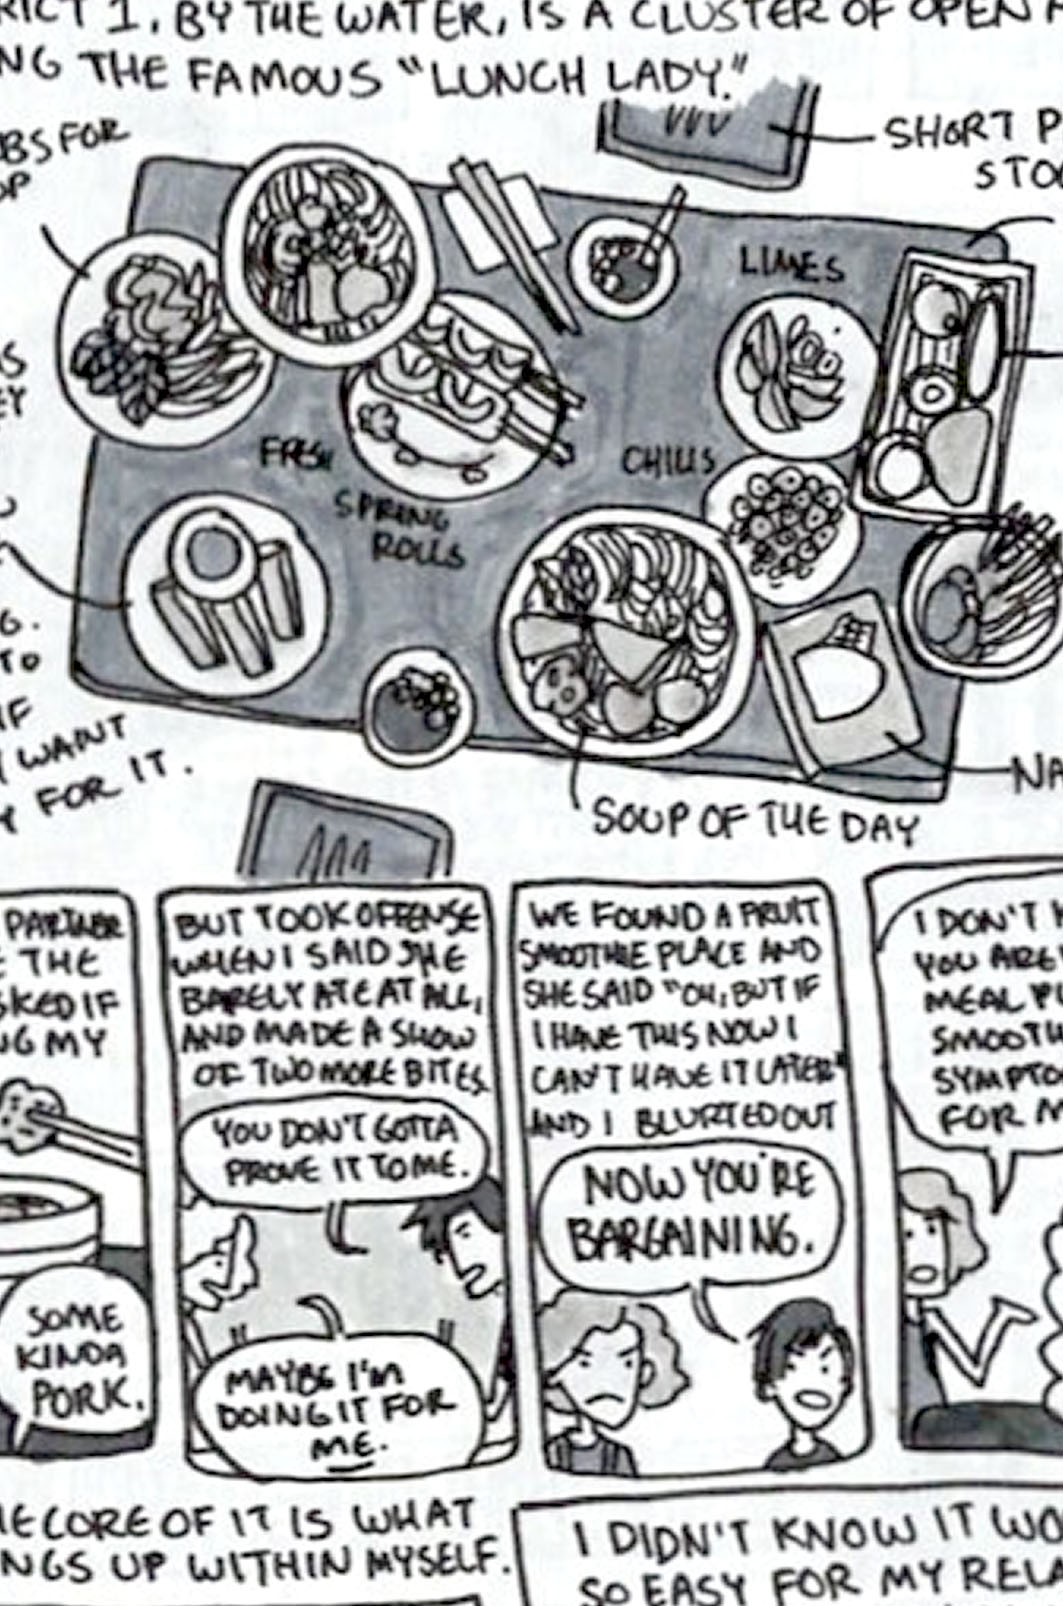 RICT 1, BY THE WATER, IS A CLUSTER OF OPEN A
NG THE FAMOUS "LUNCH LADY."
BS FOR
OP
SHORT P
STO
LIMES
AS
EY
FRESH
SPRING
ROLLS
CHILIS
G.
TO
IF
Y WANT
Y FOR IT.
NA
SOUP OF THE DAY
PARTNER
E THE
SKED IF
NG MY
SOME
KINDA
PORK.
BUT TOOK OFFENSE
WHEN I SAID SHE
BARELY ATE AT ALL,
AND MADE A SHOW
OF TWO MORE BITES.
YOU DON'T GOTTA
PROVE IT TO ME.
MAYBE I'M
DOING IT FOR
ME.
WE FOUND A FRUIT
SMOOTHIE PLACE AND
SHE SAID "OH, BUT IF
I HAVE THIS NOW I
CAN'T HAVE IT LATER"
AND I BLURTED OUT
NOW YOU'RE
BARGAINING.
I DON'T
YOU ARE
MEAL P
SMOOTH
SYMPTO
FOR A
HE CORE OF IT IS WHAT
NGS UP WITHIN MYSELF.
I DIDN'T KNOW IT WO
SO EASY FOR MY RELA